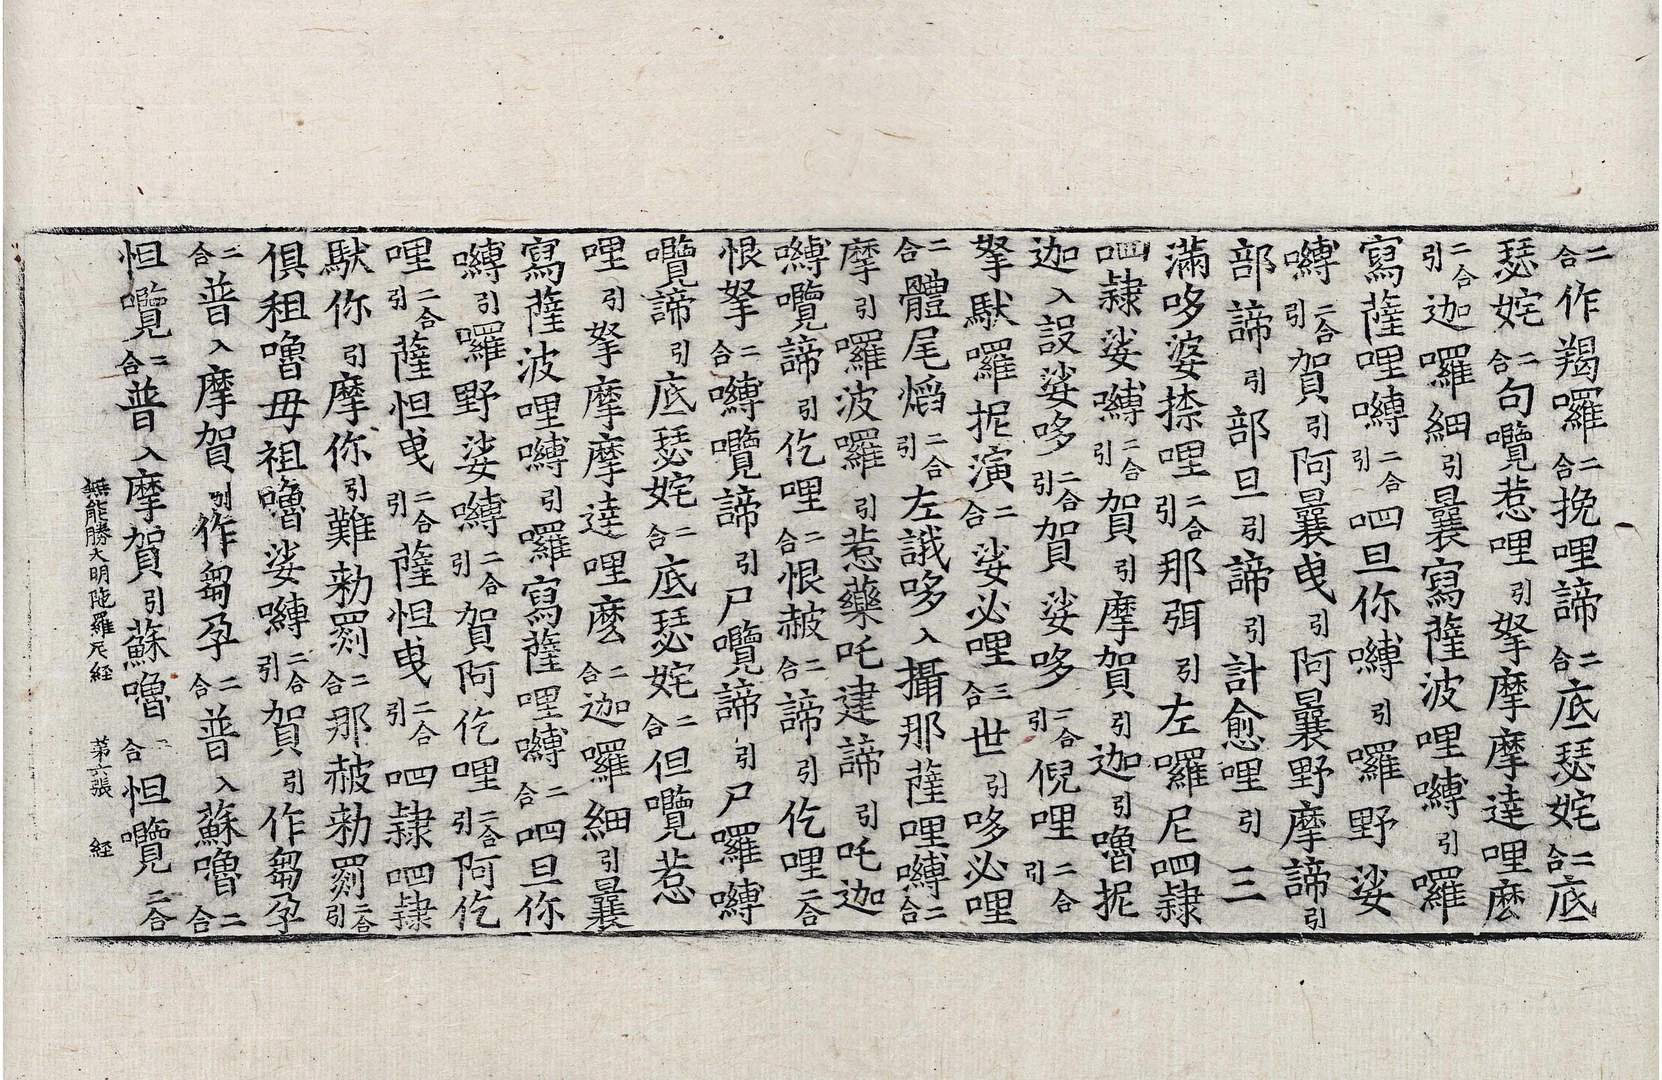 二合作羯囉二合挽哩諦二合底瑟姹二合底
瑟姹二合句囕惹哩引拏摩摩達哩麼
二合引迦囉細引曩寫薩波哩嚩引囉
寫薩哩嚩二合引呬旦你嚩引囉野娑
嚩二合引賀引阿曩曳引阿曩野摩諦引
部諦引部旦引諦引計愈哩引三
滿哆婆捺哩二合引那弭引左囉尼呬隷
呬隷娑嚩二合引賀引摩賀引迦引嚕抳
迦入設娑哆二合引賀娑哆二合引倪哩二合引
拏馱囉抳演二合娑必哩三合世引哆必哩
二合體尾熖二合引左誐哆入攝那薩哩嚩二合
摩引囉波囉引惹藥吒建諦引吒迦
嚩囕諦引仡哩二合恨赦二合諦引仡哩二合
恨拏二合嚩囕諦引尸囕諦引尸囉嚩
囕諦引底瑟姹二合底瑟姹二合但囕惹
哩引拏摩摩達哩麼二合迦囉細引曩
寫薩波哩嚩引囉寫薩哩嚩二合呬旦你
嚩引囉野娑嚩二合引賀阿仡哩二合引阿仡
哩二合引薩怛曳二合引薩怛曳二合引呬隷呬隷
馱你引摩你引難勑罽二合那赦勑罽二合引
俱租嚕毋祖嚕娑嚩二合引賀引作芻孕
二合普入摩賀引作芻孕二合普入蘇嚕二合
怛囕二合普入摩賀引蘇嚕二合怛囕二合
無能勝大明陁羅尼経 第六張 経